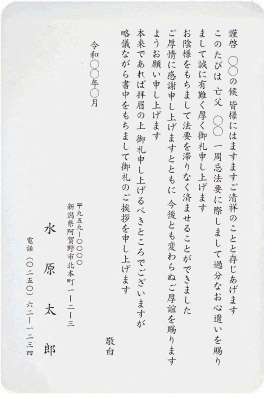 謹啓 ○○の候 皆様にはますますご清祥のことと存じあげます
このたびは 亡父 ○○ 一周忌法要に際しまして過分なお心遣いを賜り
まして誠に有難く厚く御礼申し上げます
お陰様をもちまして法要を滞りなく済ませることができました
ご厚情に感謝申し上げますとともに 今後とも変わらぬご厚誼を賜ります
ようお願い申し上げます
本来であれば拝眉の上 御礼申し上げるべきところでございますが
略儀ながら書中をもちまして御礼のご挨拶を申し上げます
敬白
令和○○年○月
〒九五九-○○○○○
新潟県阿賀野市北本町一-二-三
水原太郎
電話(○二五○)六二-一二三四